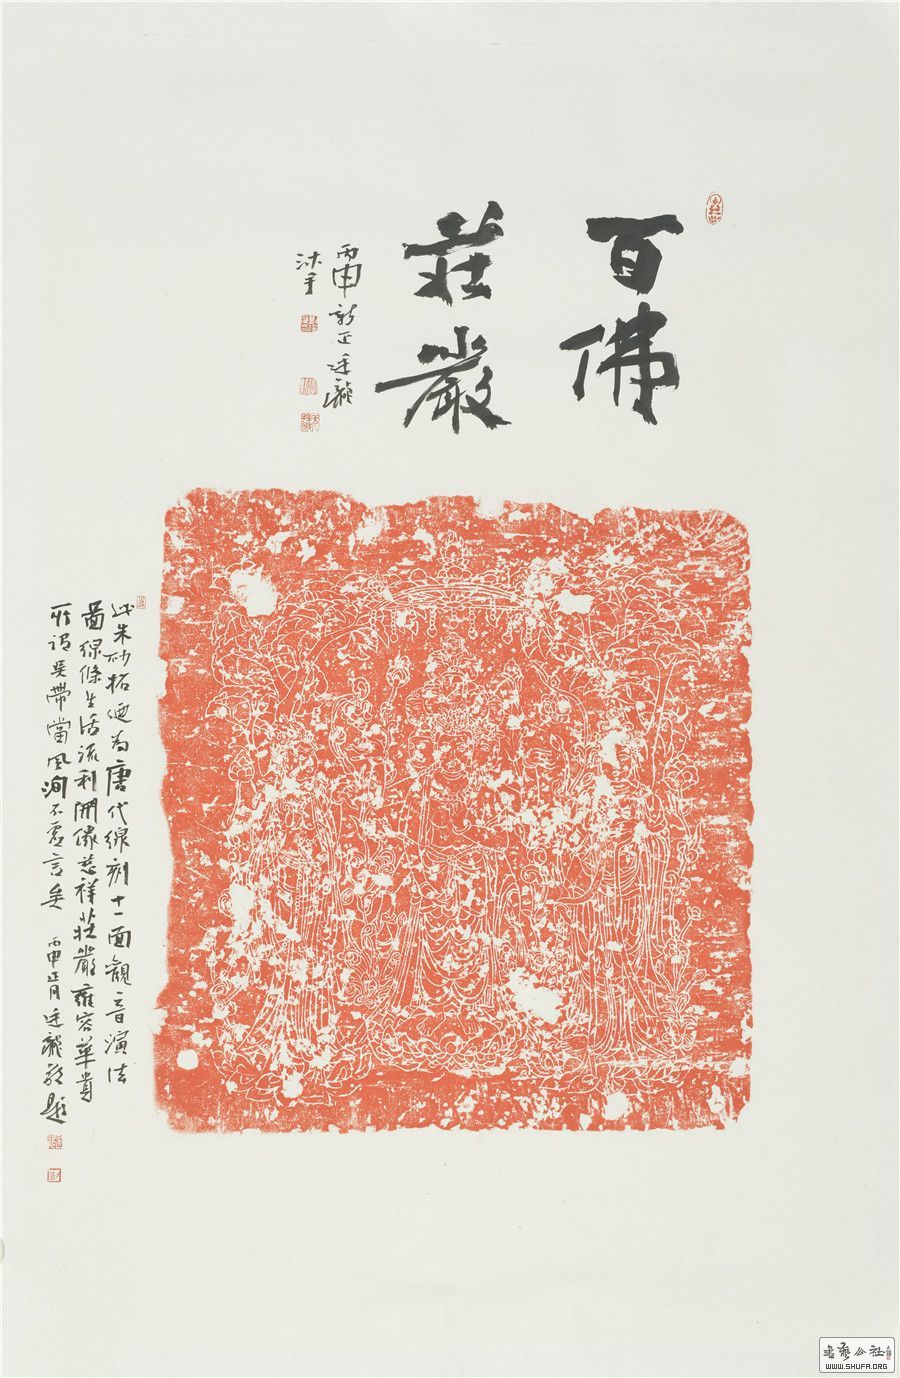 百佛
莊嚴
丙申新正廷龍
沐手
此朱砂拓迺為唐代線刻十一面觀音演法
圖線條生活流利開像慈祥莊嚴雍容華貴
所謂吳帶當風洵不虛言矣 丙申正月廷龍敬題
書藝公社
WWW.SHUFA.ORG